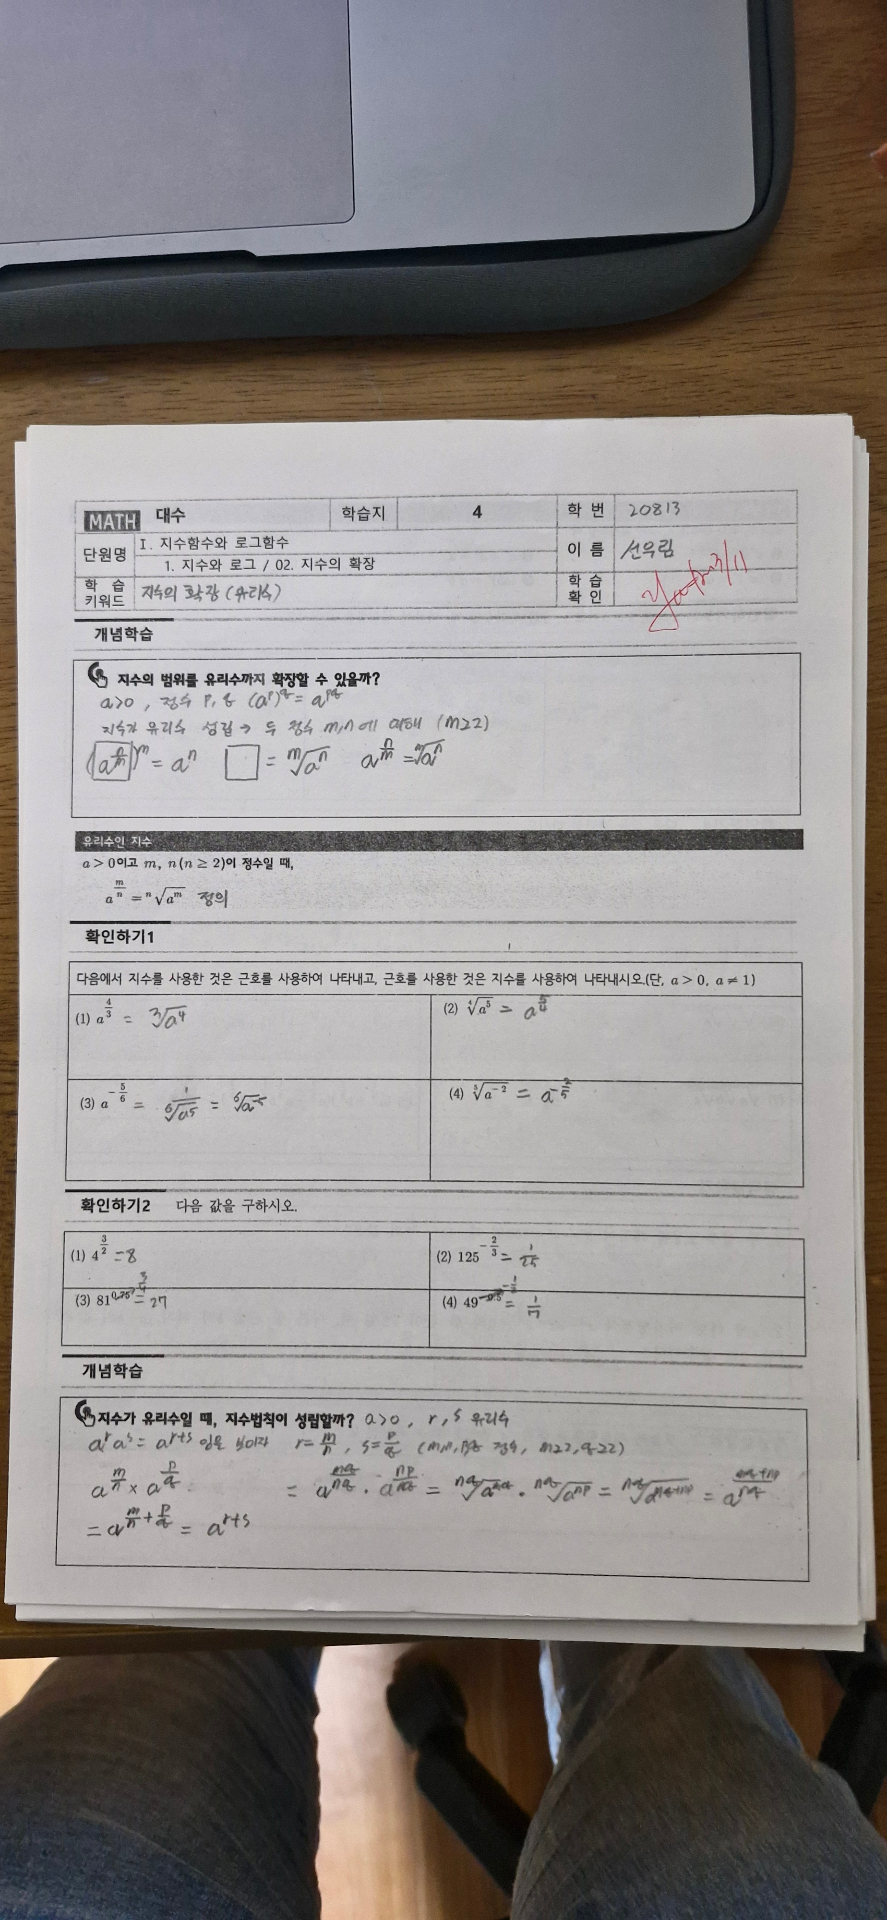 MATH 대수 학습지 4 학 번 20813
단원명 Ⅰ. 지수함수와 로그함수 이 름 선우림
1. 지수와 로그 / 02. 지수의 확장
학 습 키워드 지수의 확장 (유리수) 학 습 확 인 3/11
개념학습
지수의 범위를 유리수까지 확장할 수 있을까?
a>0, 정수 p, q (a^p)^q = a^{pq}
지수가 유리수 성립 → 두 정수 m, n에 대해 (m≥2)
(a^{n/m})^m = a^n □ = ᵐ√(a^n) a^{n/m} = ᵐ√(a^n)
유리수인 지수
a > 0이고 m, n(n ≥ 2)이 정수일 때,
a^{m/n} = ⁿ√(a^m) 정의
확인하기1
다음에서 지수를 사용한 것은 근호를 사용하여 나타내고, 근호를 사용한 것은 지수를 사용하여 나타내시오.(단, a > 0, a ≠ 1)
(1) a^{4/3} = ³√(a^4)
(2) ⁴√(a^5) = a^{5/4}
(3) a^{-5/6} = 1/⁶√(a^5) = ⁶√(a^{-5})
(4) ⁵√(a^{-2}) = a^{-2/5}
확인하기2 다음 값을 구하시오.
(1) 4^{3/2} = 8
(2) 125^{-2/3} = 1/25
(3) 81^{0.75} ^{3/4} = 27
(4) 49^{-0.5} ^{-1/2} = 1/7
개념학습
지수가 유리수일 때, 지수법칙이 성립할까? a>0, r, s 유리수
a^r a^s = a^{r+s} 임을 보이라 r = m/n, s = p/q (m, n, p, q 정수, n≥2, q≥2)
a^{m/n} × a^{p/q} = a^{mq/nq} · a^{np/nq} = ^{nq}√(a^{mq}) · ^{nq}√(a^{np}) = ^{nq}√(a^{mq+np}) = a^{(mq+np)/nq}
= a^{m/n + p/q} = a^{r+s}